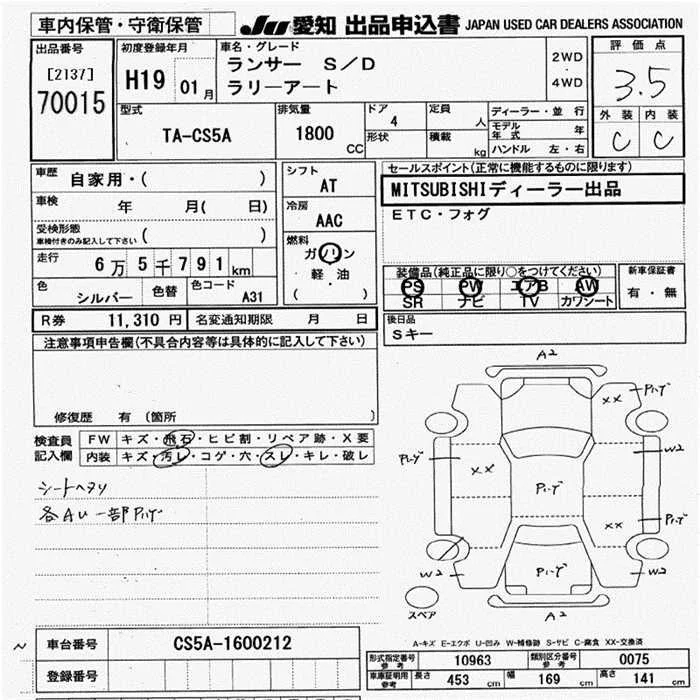 車内保管・守衛保管 JU 愛知 出品申込書 JAPAN USED CAR DEALERS ASSOCIATION
出品番号
[2137]
70015
初度登録年月
H19 01月
車名・グレード
ランサー S/D
ラリーアート
2WD
・
4WD
評価点
3.5
外装 内装
C C
型式
TA-CS5A
排気量
1800 CC
ドア
4
形状
定員
人
積載
kg
ディーラー・並行
モデル年式 年
ハンドル 左・右
車歴
自家用・( )
車検
年 月( 日)
受検形態
車検付きのみ記入して下さい ( )
走行
6万5千791km
色
シルバー
色替
色コード
A31
シフト
AT
冷房
AAC
燃料
ガソリン
軽・油
( )
セールスポイント(正常に機能するものに限ります)
MITSUBISHIディーラー出品
ETC・フォグ
装備品(純正品に限り○をつけてください)
PS PW エアB AW
SR ナビ TV カワシート
新車保証書
有・無
R券 11,310円 名変通知期限 月 日
後日品
Sキー
注意事項申告欄(不具合内容等は具体的に記入して下さい)
修復歴 有 (箇所 )
検査員
記入欄
FW キズ・飛石・ヒビ割・リペア跡・X要
内装 キズ・汚レ・コゲ・穴・スレ・キレ・破レ
シートヘタリ
各AU一部Pハゲ
A2
××
Pハゲ
W2
Pハゲ
××
Pハゲ
××
Pハゲ
W2
Pハゲ
W2
スペア
A2
A-キズ E-エクボ U-凹み W-補修跡 S-サビ C-腐食 XX-交換済
車台番号 CS5A-1600212
登録番号
形式指定番号 参考 10963 類別区分番号 参考 0075
車庫証明用 参考 長さ 453 cm 幅 169 cm 高さ 141 cm